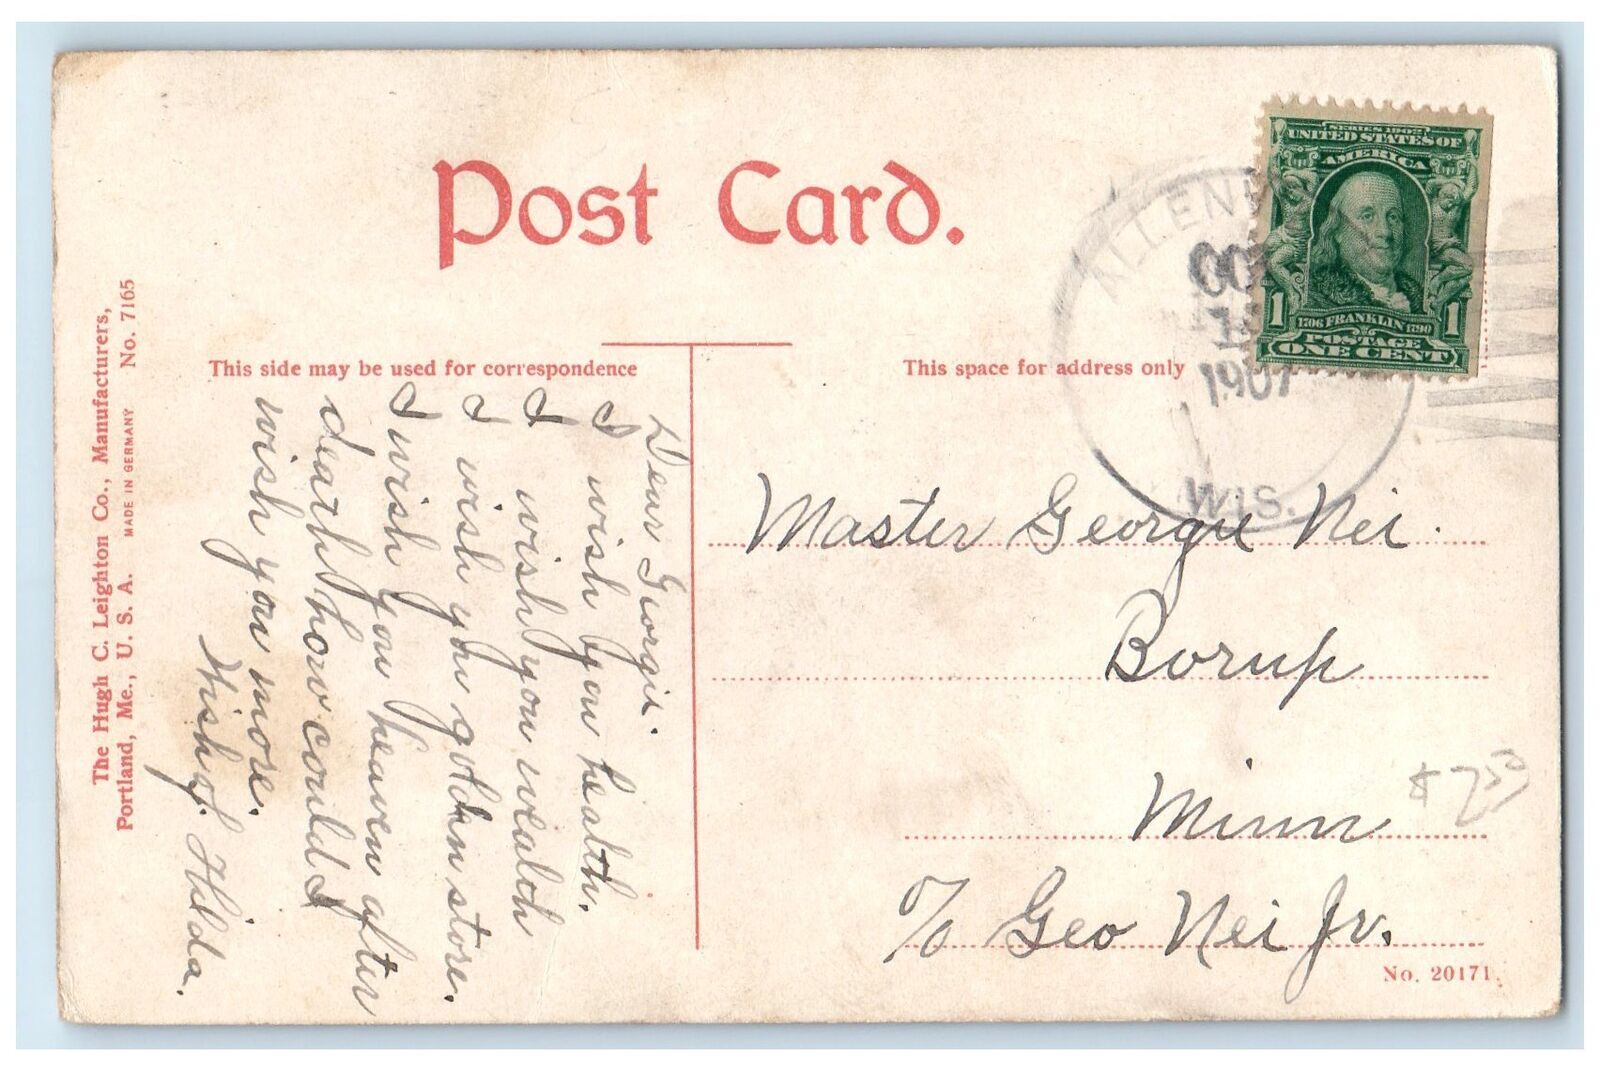 Post Card.
This side may be used for correspondence
This space for address only
The Hugh C. Leighton Co., Manufacturers,
Portland, Me., U. S. A. MADE IN GERMANY No. 7165
Dear Georgie.
I wish you health.
I wish you wealth
I wish you golden store.
I wish you heaven after
death how could I
wish you more.
Wish of. Hilda.
SERIES 1902
UNITED STATES OF
AMERICA
1 1
1706 FRANKLIN 1790
POSTAGE
ONE CENT
1907
WIS.
Master Georgie Nei.
Borup
Minn
$ 7 50
c/o Geo Nei Jr.
No. 20171.